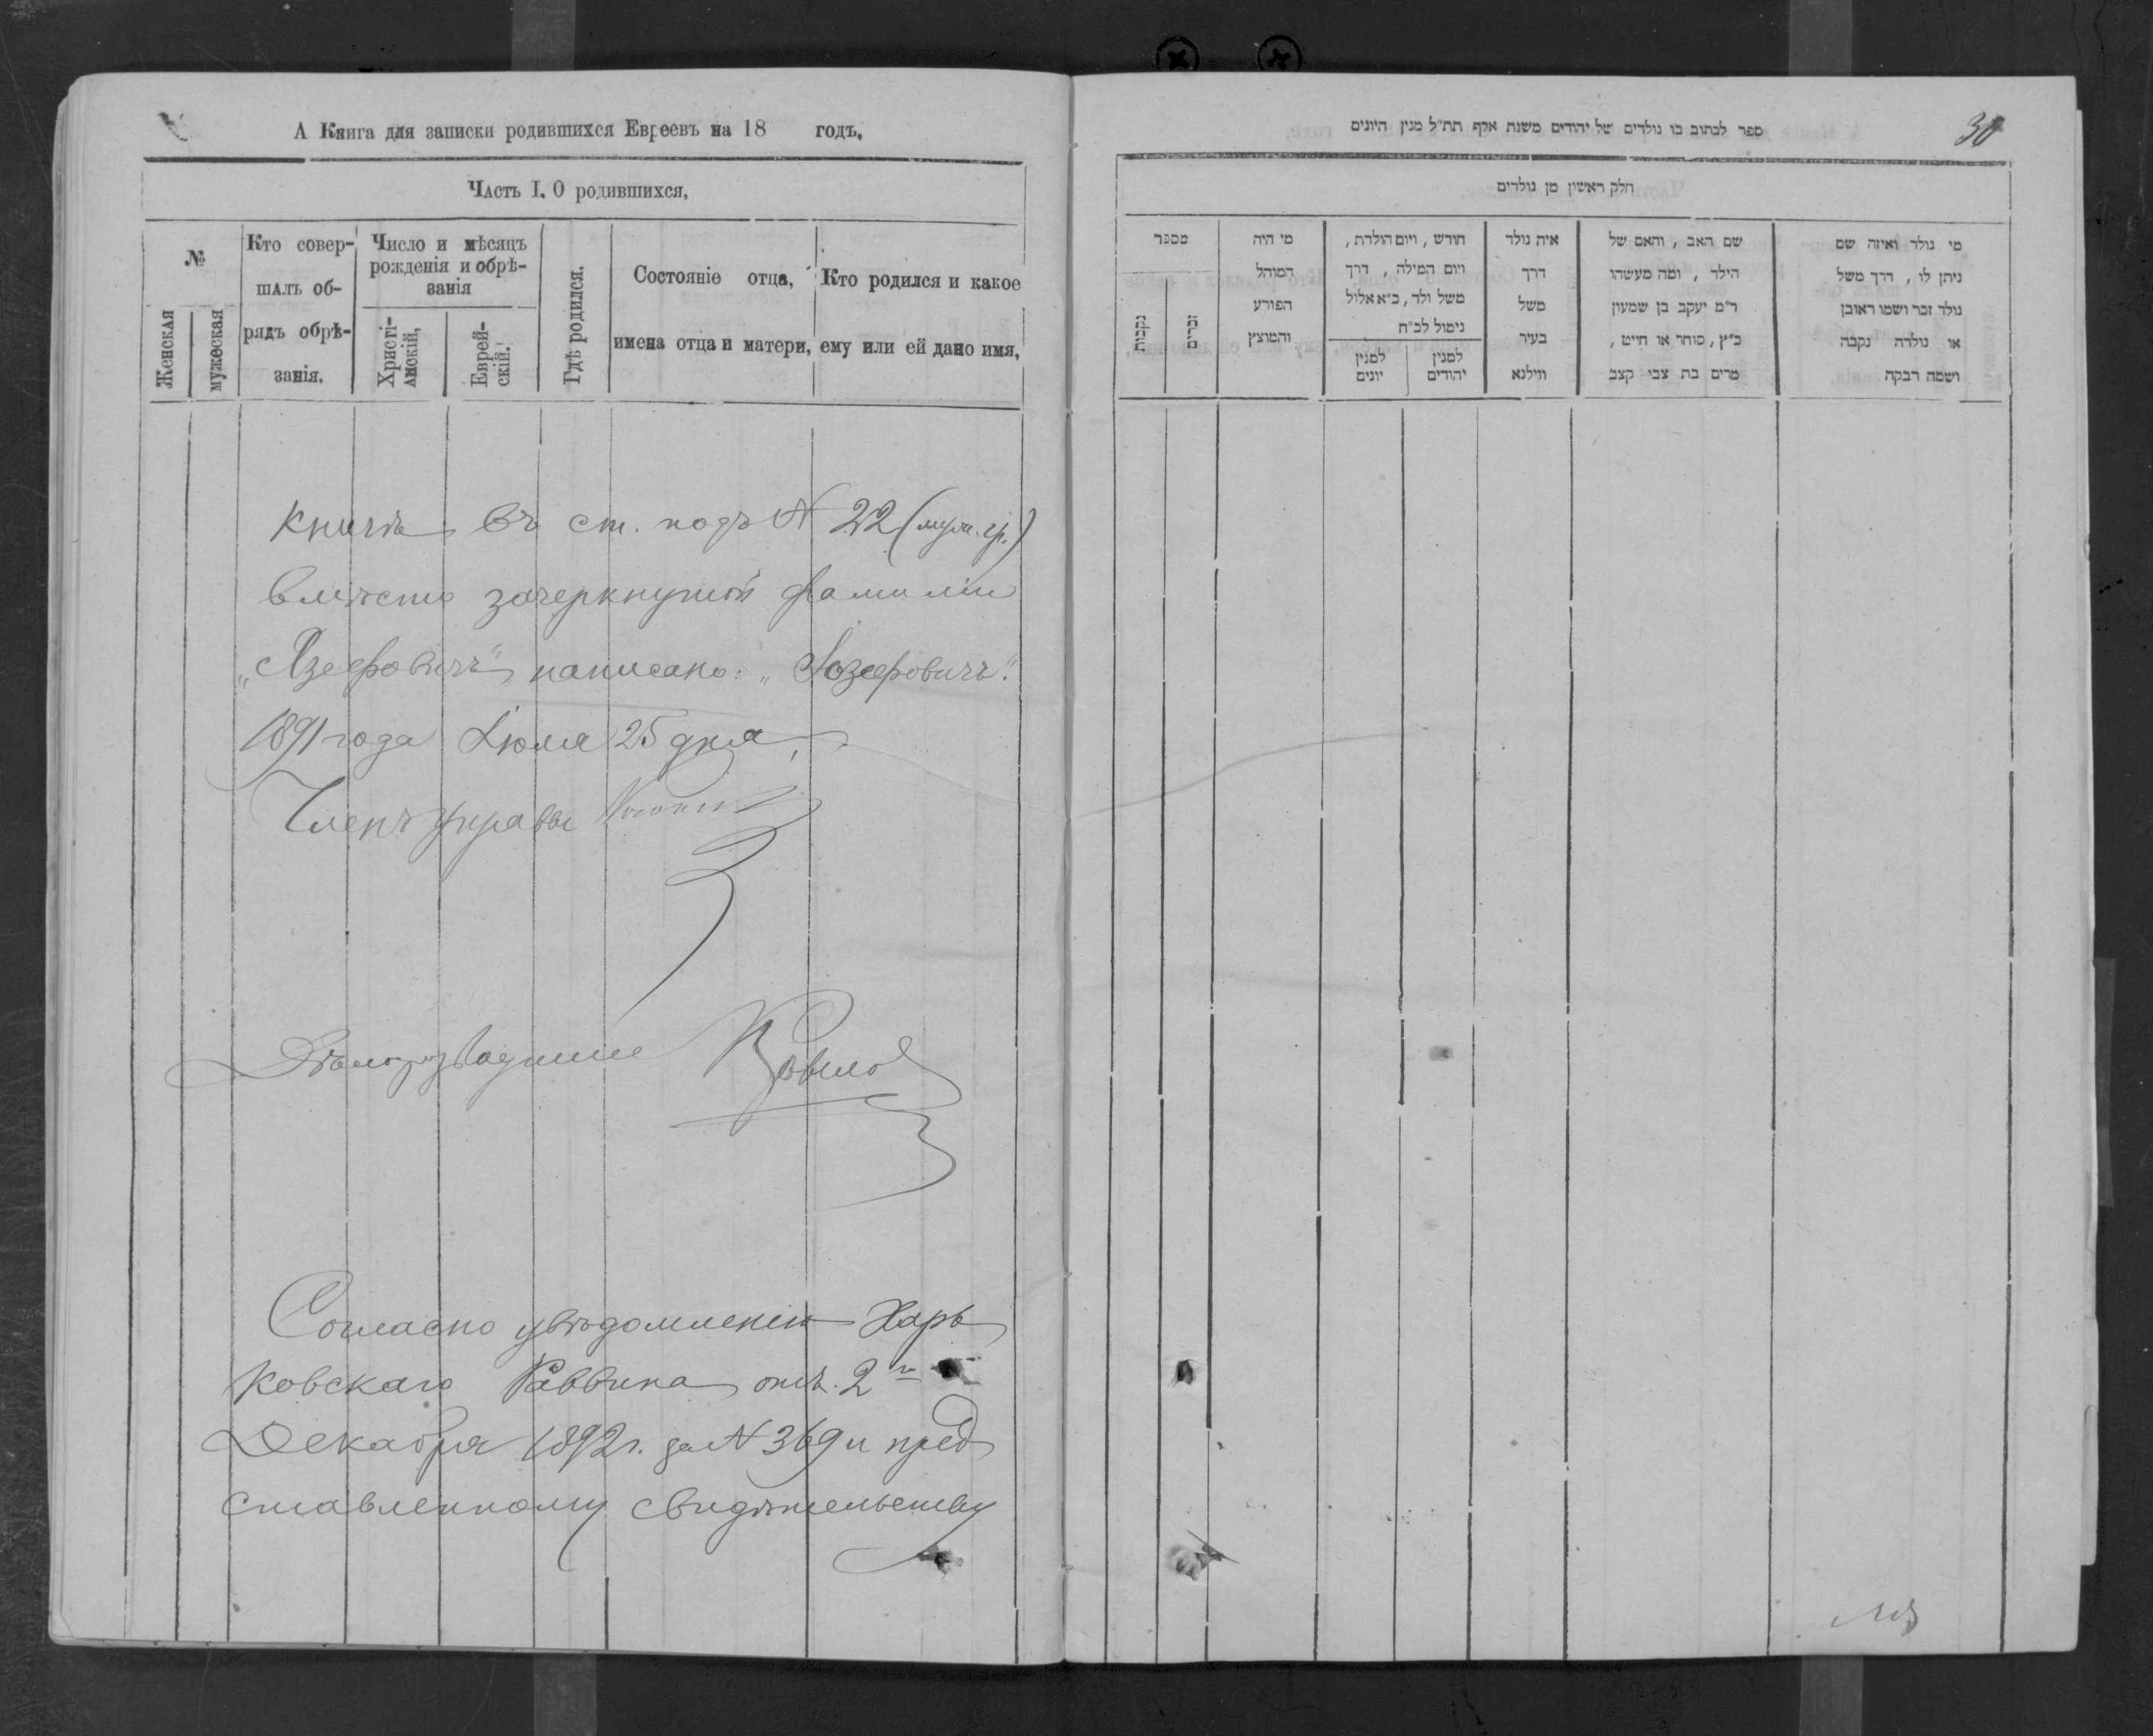 А Книга для записки родившихся Евреевъ на 18 годъ.
Часть I. О родившихся,
№
Женская
мужеская
Кто совер-
шалъ об-
рядъ обрѣ-
занія.
Число и мѣсяцъ
рожденія и обрѣ-
занія
Христі-
анскій,
Еврей-
скій.
Гдѣ родился.
Состояніе отца,
имена отца и матери,
Кто родился и какое
ему или ей дано имя,
книгѣ въ ст. подъ N 22 (муж. гр.)
вмѣсто зачеркнутой фамиліи
„Азефовичъ" написано: „Іозефовичъ".
1891 года Іюля 25 дня,
Членъ управы
Дѣлопроизводитель
Согласно увѣдомленію Харь
ковскаго Раввина отъ 2го
Декабря 1892 г. за N 369 и пред
ставленному свидѣтельству
ספר לכתוב בו נולדים של יהודים משנת אלף תת״ל מנין היונים
30
חלק ראשון מן נולדים
מספר
נקבות
זכרים
מי היה
המוהל
הפורע
והמוצץ
חודש , ויום הולדת ,
ויום המילה , דרך
משל ולד , כ״א אלול
נימול לכ״ח
למנין
יונים
למנין
יהודים
איה נולד
דרך
משל
בעיר
ווילנא
שם האב , והאם של
הילד , ומה מעשהו
ר״מ יעקב בן שמעון
כ״ץ , סוחר או חייט ,
מרים בת צבי קצב
מי נולד ואיזה שם
ניתן לו , דרך משל
נולד זכר ושמו ראובן
או נולדה נקבה
ושמה רבקה